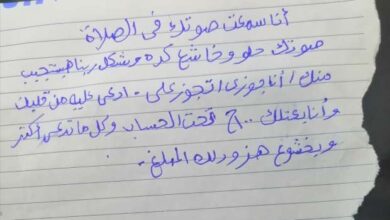 أنا سمعت صوتك فى الصلاة
صوتك حلو وخاشع كده وشكل ربنا هيستجيب
منك / أنا جوزى اتجوز على - ادعى عليه من قلبك
وأنا بعتلك ج تحت الحساب وكل ما تدعى أكتر
وبخشوع هزودلك المبلغ -